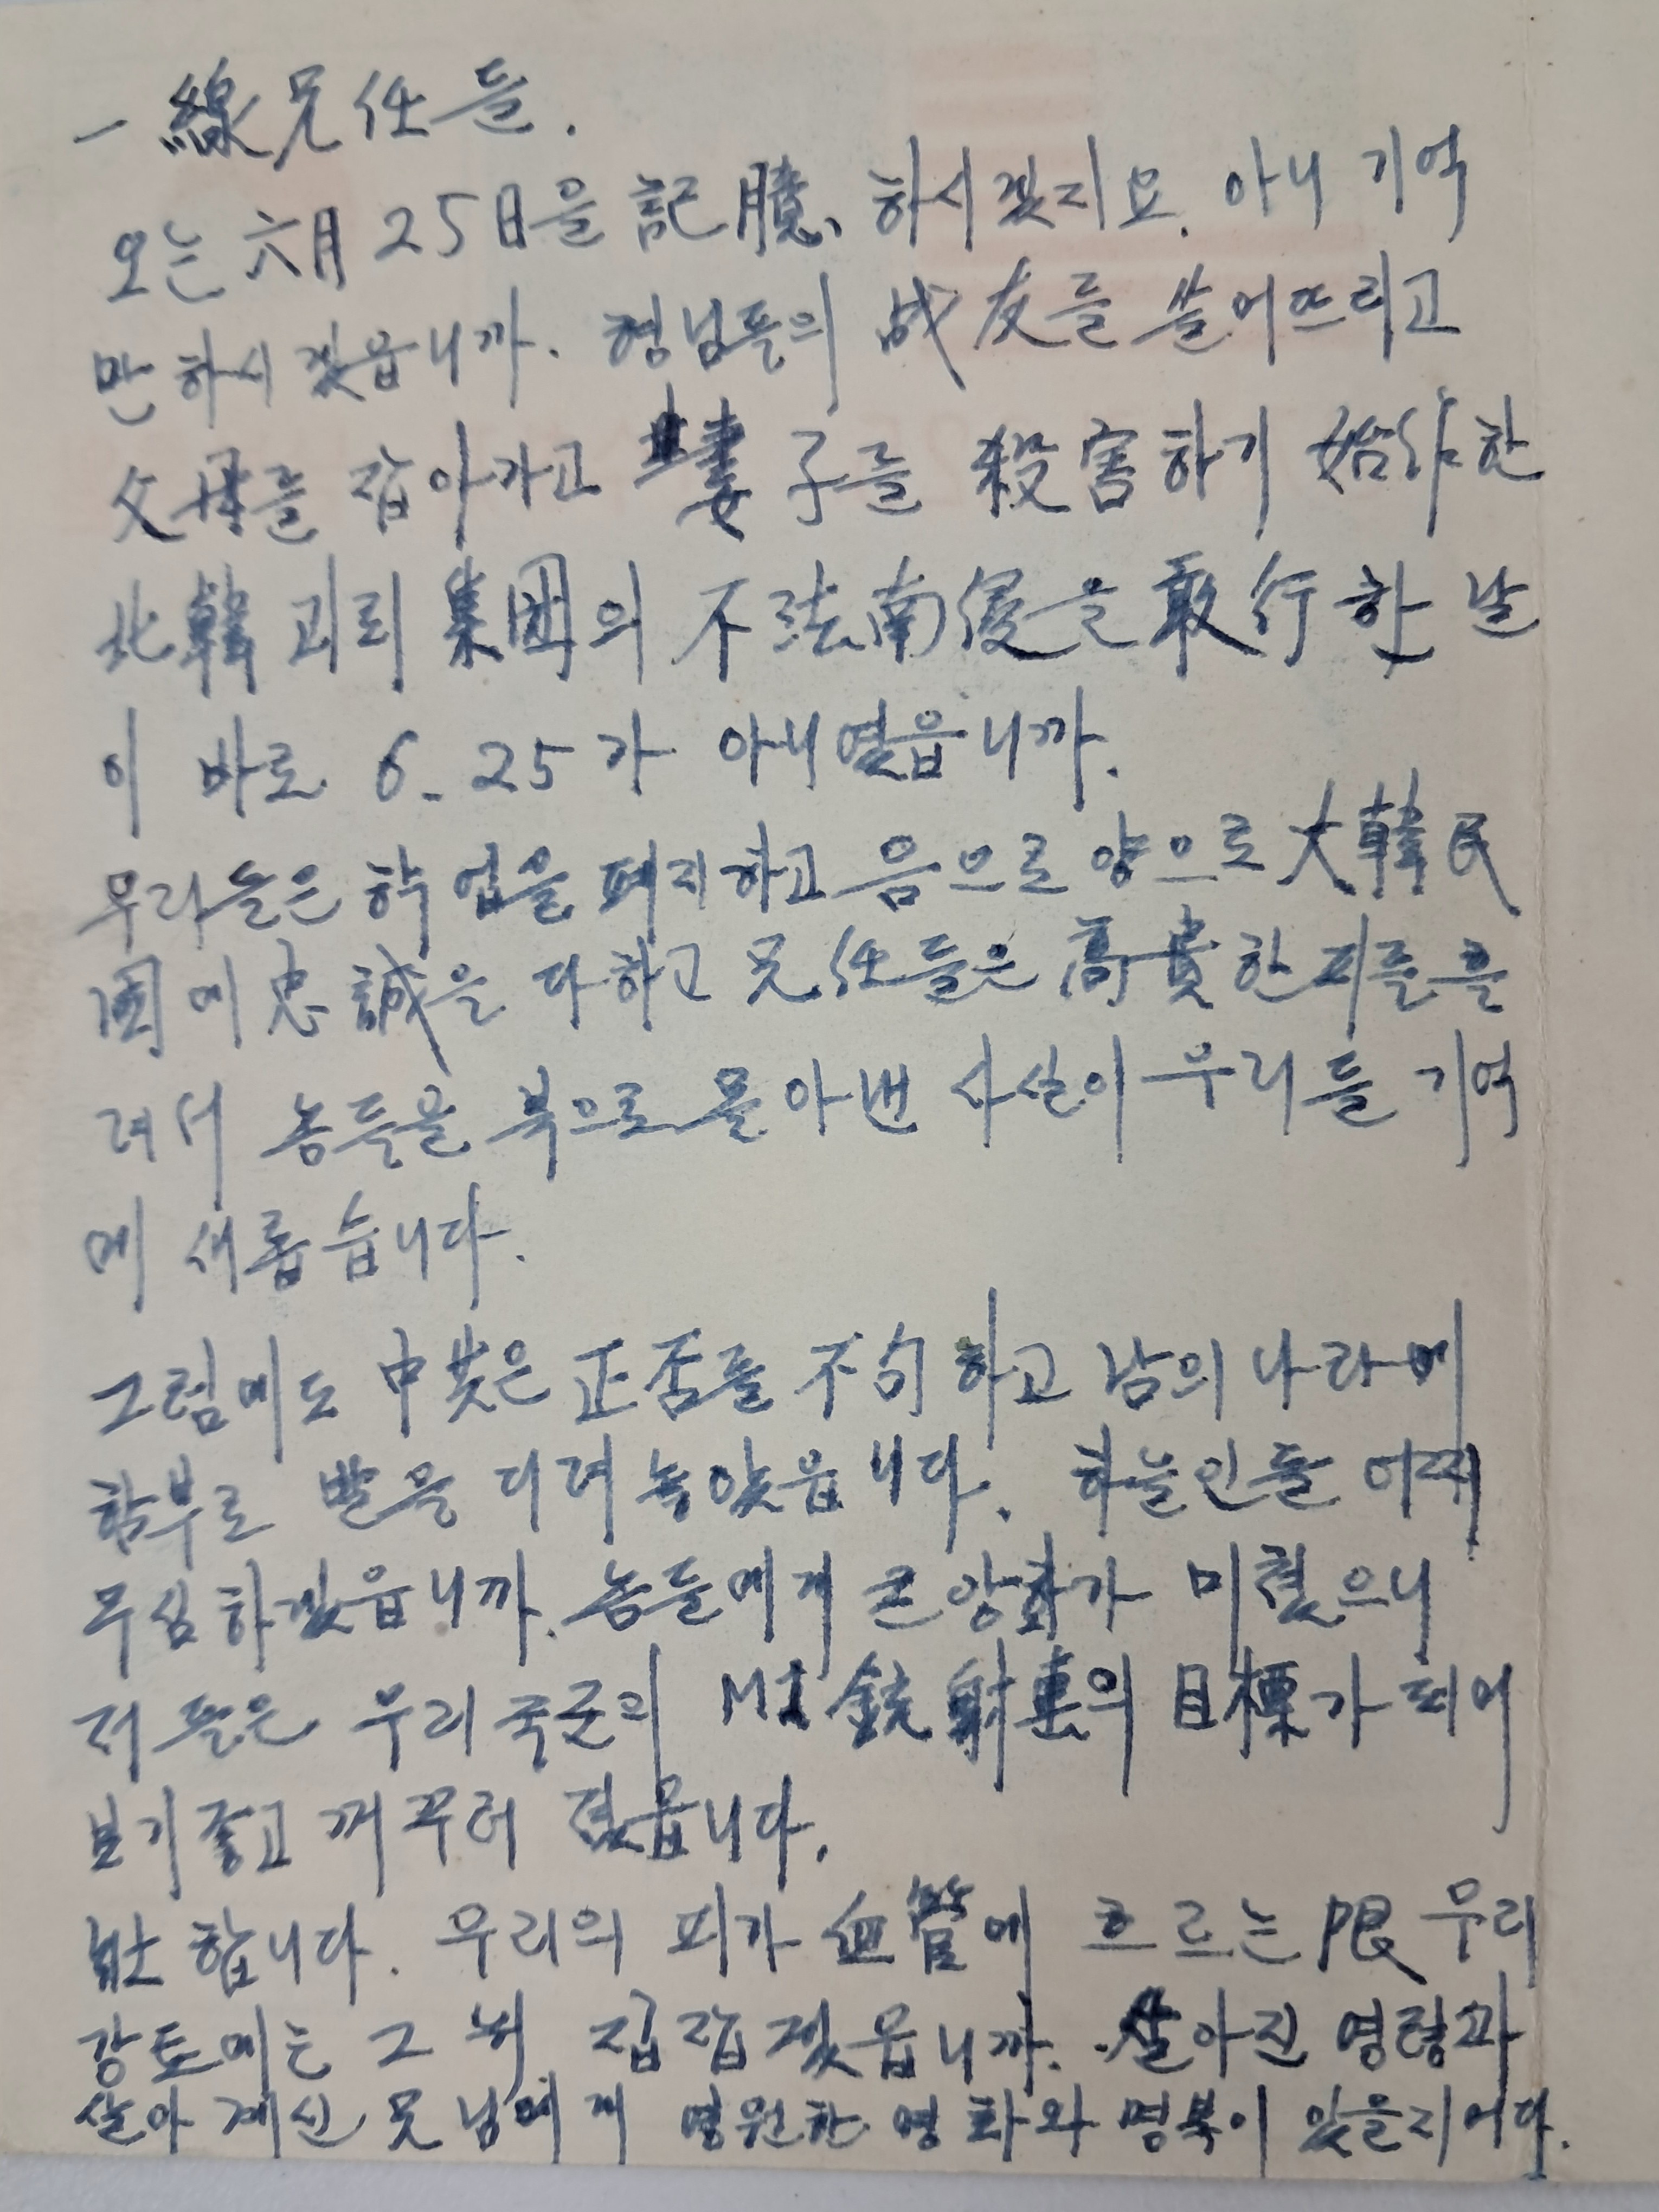 一線兄任들.
오는 六月 25日을 記臆, 하시겠지요. 아니 기억
만 하시겠읍니까. 형님들의 战友를 쓸어뜨리고
父母를 잡아가고 妻子를 殺害하기 始作한
北韓 괴뢰 集團의 不法南侵을 敢行한 날
이 바로 6.25가 아니였읍니까.
우리들은 학업을 폐지하고 음으로 양으로 大韓民
國에 忠誠을 다하고 兄任들은 高貴한 피를 흘
려서 놈들을 북으로 몰아낸 사실이 우리들 기억
에 새롭습니다.
그럼에도 中共은 正否를 不句하고 남의 나라에
함부로 발을 디려놓았읍니다. 하늘인들 어찌
무심하겠읍니까. 놈들에게 큰 앙화가 미쳤으니
저들은 우리 국군의 M1 銃 射擊의 目標가 되어
보기좋고 꺼꾸러 졌읍니다.
壯합니다. 우리의 피가 血管에 흐르는 限 우리
강토에는 그 뉘 집잡겠읍니까. 살아진 영령과
살아 계신 못님에게 영원한 영화와 명복이 있을지어다.